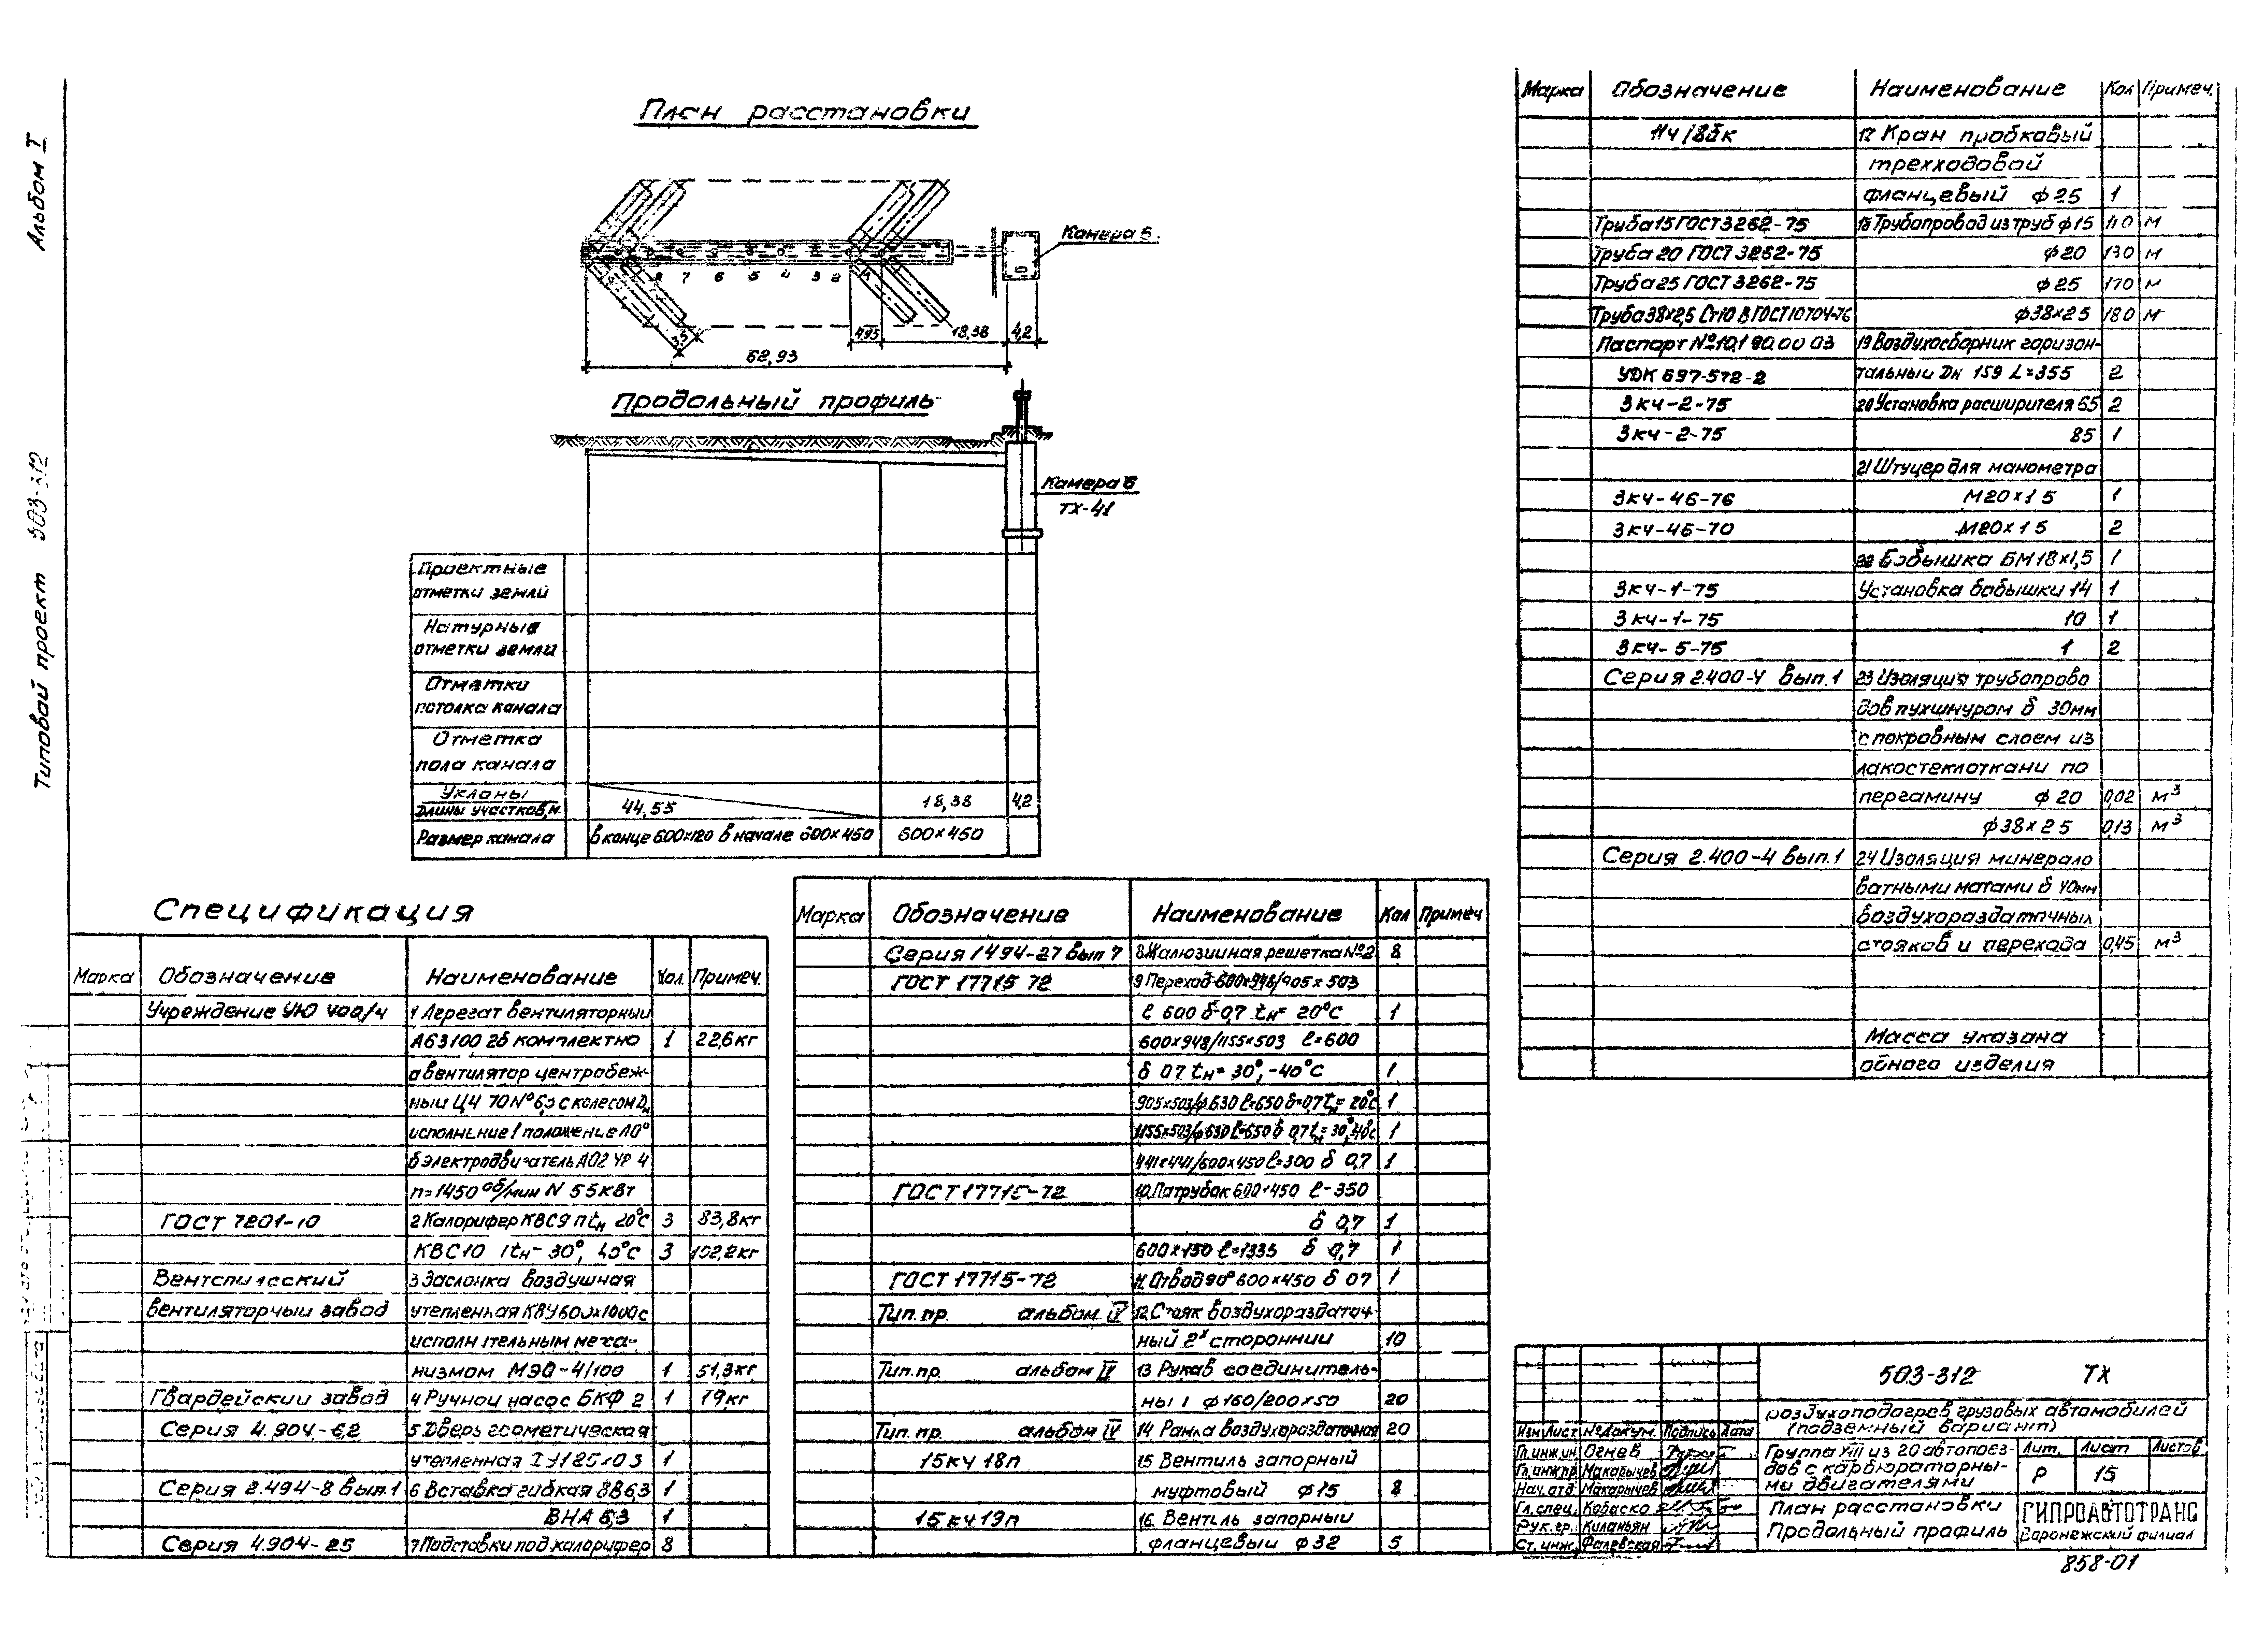 Альбом I
Типовой проект 503-312
План расстановки
Камера 6
8 7 6 5 4 3 2 1
3,5
4,95
18,38
4,2
62,93
Продольный профиль
Камера 6
ТХ-41
Проектные
отметки земли
Натурные
отметки земли
Отметки
потолка канала
Отметка
пола канала
Уклоны
Длины участков, м
44,55
18,38
4,2
Размер канала
в конце 600×120 в начале 600×450
600×450
Спецификация
Марка Обозначение Наименование Кол. Примеч.
Учреждение УЮ 400/4 1 Агрегат вентиляторный
А63100 2б комплектно 1 226кг
а вентилятор центробеж-
ный Ц4 70 №6,3 с колесом Dн
исполнение 1 положение Л0°
б электродвигатель АО2 42 4
n=1450 об/мин N 55кВт
ГОСТ 7201-70 2 Калорифер КВС9 п tн 20°С 3 83,8кг
КВС10 п tн- 30°, 40°С 3 102,2кг
Вентспилсский 3 Заслонка воздушная
вентиляторный завод утепленная КВУ600×1000 с
исполнительным меха-
низмом МЭО-4/100 1 51,3кг
Гвардейский завод 4 Ручной насос БКФ 2 1 19кг
Серия 4.904-62 5 Дверь герметическая
утепленная 1
Серия 2.494-8 вып.1 6 Вставка гибкая ВВ6,3 1
ВНА 6,3 1
Серия 4.904-25 7 Подставки под калорифер 8
Марка Обозначение Наименование Кол Примеч
Серия 1494-27 вып 7 8 Жалюзийная решетка №2 8
ГОСТ 17715 72 9 Переход 600×948/905×503
ℓ 600 δ-0,7 tн= 20°С 1
600×948/1155×503 ℓ=600
δ 07 tн= 30°, -40°С 1
905×503/ф630 ℓ=650 δ=0,7 tн= 20°С 1
1155×503/ф630 ℓ=650 δ 0,7 tн= 30°, 40°С 1
441×441/600×450 ℓ=300 δ 0,7 1
ГОСТ 17715-72 10. Патрубок 600×450 ℓ-350
δ 0,7 1
600×150 ℓ=1335 δ 0,7 1
ГОСТ 17715-72 11. Отвод 90° 600×450 δ 07 1
Тип. пр. альбом IV 12. Стояк воздухораздаточ-
ный 2х сторонний 10
Тип. пр. альбом IV 13 Рукав соединитель-
ный ф160/200×50 20
Тип. пр. альбом IV 14 Рамка воздухораздаточная 20
15кч 18п 15 Вентиль запорный
муфтовый ф15 8
15кч 19п 16. Вентиль запорный
фланцевый ф32 5
Марка Обозначение Наименование Кол Примеч.
11ч18бк 17 Кран пробковый
трехходовой
фланцевый ф25 1
Труба 15 ГОСТ 3262-75 18 Трубопровод из труб ф15 110 м
Труба 20 ГОСТ 3262-75 ф20 130 м
Труба 25 ГОСТ 3262-75 ф25 170 м
Труба 38×2,5 Ст10 В ГОСТ 10704-76 ф38×25 180 м
Паспорт №10,1 90.00 03 19 Воздухосборник горизон-
УДК 697-572-2 тальный Dн 159 L=355 2
3кч-2-75 20 Установка расширителя 65 2
3кч-2-75 85 1
21 Штуцер для манометра
3кч-46-76 М20×1 5 1
3кч-46-70 М20×1 5 2
22 Бобышка БМ18×1,5 1
3кч-1-75 Установка бобышки 14 1
3кч-1-75 10 1
3кч-5-75 1 2
Серия 2.400-4 вып.1 23 Изоляция трубопрово
дов пухшнуром δ 30мм
с покровным слоем из
лакостеклоткани по
пергамину ф20 0,02 м³
ф38×2 5 0,13 м³
Серия 2.400-4 вып.1 24 Изоляция минерало
ватными матами δ 40мм
воздухораздаточных
стояков и перехода 0,45 м³
Масса указана
одного изделия
503-312 ТХ
Воздухоподогрев грузовых автомобилей
(подземный вариант)
Изм Лист №докум. Подпись Дата
Гл. инж. ин Огнев
Гл. инж. пр. Макарычев
Нач. отд. Макарычев
Гл. спец. Кабаско
Рук. гр. Киланьян
Ст. инж. Фалевская
Группа VIII из 20 автопоез-
дов с карбюраторны-
ми двигателями
Лит. Лист Листов
Р 15
План расстановки
Продольный профиль
ГИПРОАВТОТРАНС
Воронежский филиал
858-01